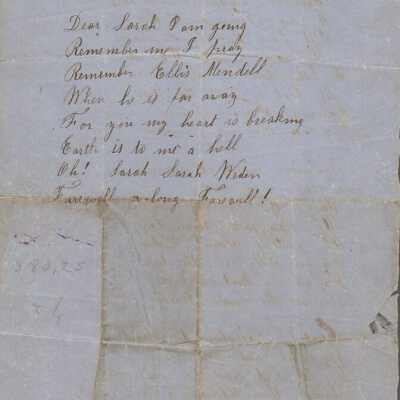 Dear Sarah I am going
Remember me I pray
Remember Ellis Mendell
When he is far away
For you my heart is breaking
Earth is to me a hell
Oh! Sarah Sarah Weden
Farewell a long Farewell!
383,25